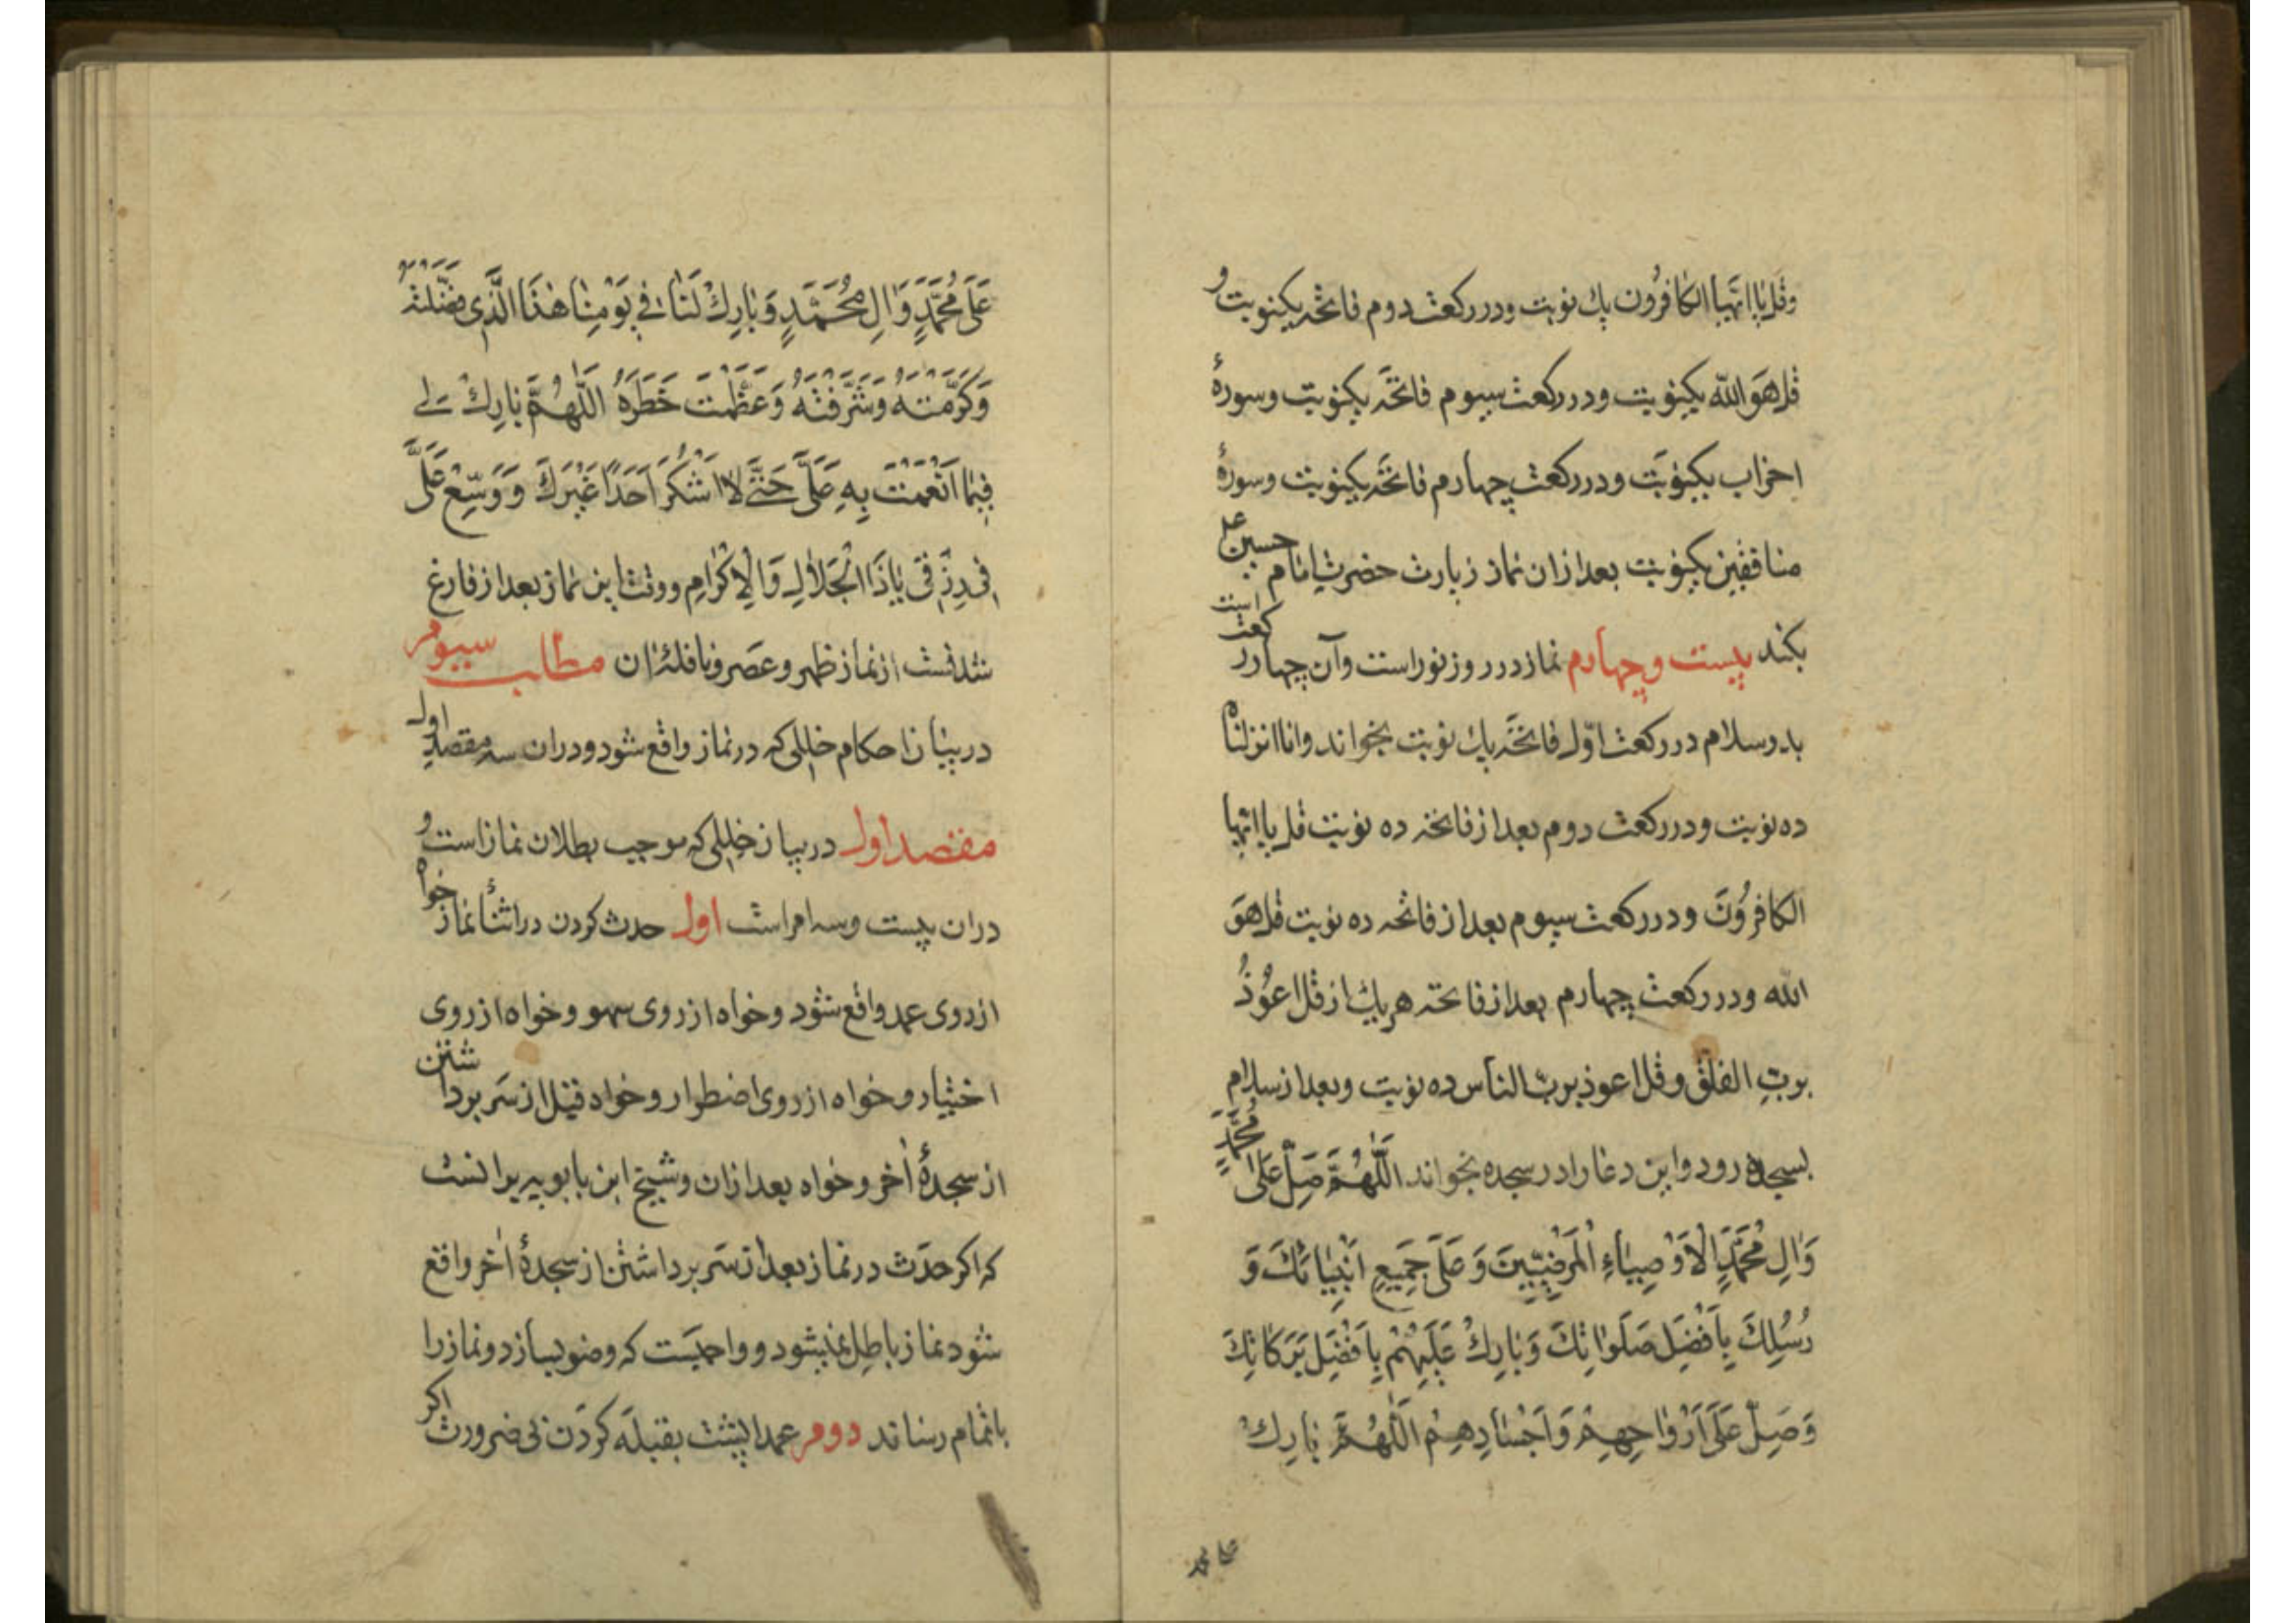 وقل یا ایها الکافرون یك نوبت ودر رکعت دوم فاتحه یکنوبت و
قل هو الله یکنوبت ودر رکعت سیوم فاتحه یکنوبت وسورهٔ
احزاب یکنوبت ودر رکعت چهارم فاتحه یکنوبت وسورهٔ
منافقین یکنوبت بعد ازان نماز زیارت حضرت امام حسین ع
بکند بیست وچهارم نماز در روز نوراست وآن چهار رکعت است
بدو سلام در رکعت اوّل فاتحه یك نوبت بخواند وانا انزلناه
ده نوبت ودر رکعت دوم بعد از فاتحه ده نوبت قل یا ایها
الکافرُونَ ودر رکعت سیوم بعد از فاتحه ده نوبت قل هوَ
الله ودر رکعت چهارم بعد از فاتحه هر یك از قل اعُوذُ
بربِ الفلق وقل اعوذ بربّ الناس ده نوبت وبعد از سلام
بسجده رود واین دعا را در سجده بخواند اَللّٰهُمَّ صَلِّ عَلیٰ مُحَمَّدٍ
وَاٰلِ مُحَمَّدٍ الْاَوْصِیٰاءِ الْمَرْضِیّینَ وَ عَلَی جَمِیعِ اَنْبِیٰائِكَ وَ
رُسُلِكَ بِاَفْضَلِ صَلَوٰاتِكَ وَبٰارِكْ عَلَیْهِمْ بِاَفْضَلِ بَرَکٰاتِكَ
وَصَلِّ عَلَی اَرْوٰاحِهِمْ وَاَجْسٰادِهِمْ اَللّٰهُمَّ بٰارِكْ
علی محمد
عَلَی مُحَمَّدٍ وَاٰلِ مُحَمَّدٍ وَبٰارِكْ لَنٰا فِی یَوْمِنٰا هٰذَا الَّذِی فَضَّلْتَهُ
وَکَرَّمْتَهُ وَشَرَّفْتَهُ وَعَظَّمْتَ خَطَرَهُ اَللّٰهُمَّ بٰارِكْ لی
فِیمٰا اَنْعَمْتَ بِهِ عَلَیَّ حَتَّی لاٰ اَشْکُرَ اَحَداً غَیْرَكَ وَ وَسِّعْ عَلَیَّ
فِی رِزْقِی یٰا ذَا الْجَلاٰلِ وَالْاِکْرٰامِ ووقت این نماز بعد از فارغ
شدنست از نماز ظهر وعصر ونافلهٔ ان مطلب سیوم
در بیان احکام خللی که در نماز واقع شود ودران سه مقصد اول
مقصد اول در بیان خللی که موجب بطلان نماز است و
دران بیست وسه امر است اول حدث کردن در اثنأ نماز خواه
از روی عمد واقع شود وخواه از روی سهو وخواه از روی
اختیار وخواه از روی اضطرار وخواه قبل از سر برداشتن
از سجدهٔ اٰخر وخواه بعد ازان وشیخ ابن بابویه برانست
که اکر حدَث در نماز بعد از سَر برداشتن از سجدهٔ اٰخر واقع
شود نماز باطل نمیشود وواجبست که وضو بسازد ونماز را
باتمام رساند دوم عمدا پشت بقبله کردَن بی ضرورت اکر